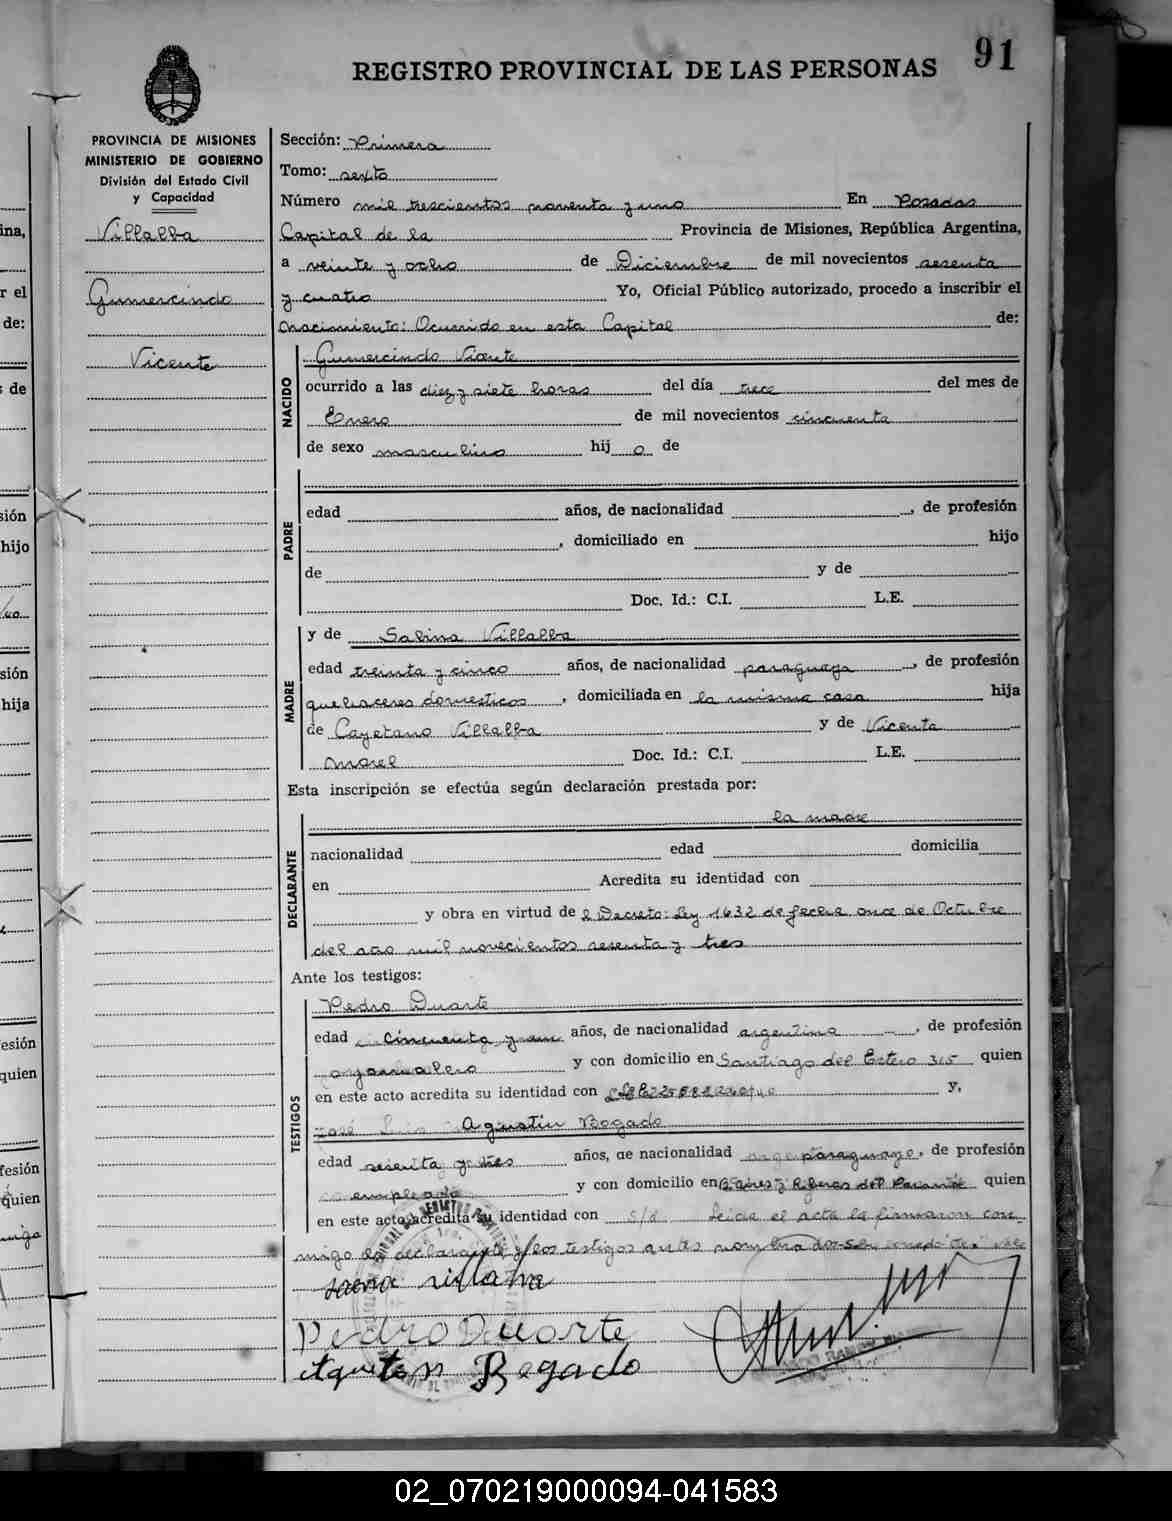 91
REGISTRO PROVINCIAL DE LAS PERSONAS
PROVINCIA DE MISIONES
MINISTERIO DE GOBIERNO
División del Estado Civil
y Capacidad
Villalba
Gumercindo
Vicente
Sección: Primera
Tomo: sexto
Número mil trescientos noventa y uno En Posadas
Capital de la Provincia de Misiones, República Argentina,
a veinte y ocho de Diciembre de mil novecientos sesenta
y cuatro Yo, Oficial Público autorizado, procedo a inscribir el
nacimiento: Ocurrido en esta Capital de:
NACIDO
Gumercindo Vicente
ocurrido a las diez y siete horas del día trece del mes de
Enero de mil novecientos cincuenta
de sexo masculino hij o de
PADRE
edad años, de nacionalidad , de profesión
, domiciliado en hijo
de y de
Doc. Id.: C.I. L.E.
MADRE
y de Sabina Villalba
edad treinta y cinco años, de nacionalidad paraguaya , de profesión
quehaceres domesticos , domiciliada en la misma casa hija
de Cayetano Villalba y de Vicenta
Morel Doc. Id.: C.I. L.E.
Esta inscripción se efectúa según declaración prestada por:
DECLARANTE
la madre
nacionalidad edad domicilia
en Acredita su identidad con
y obra en virtud de l Decreto: Ley 1632 de fecha once de Octubre
del año mil novecientos sesenta y tres
Ante los testigos:
TESTIGOS
Pedro Duarte
edad cincuenta y años, de nacionalidad argentina , de profesión
jornalero y con domicilio en Santiago del Estero 315 quien
en este acto acredita su identidad con y,
Agustin Bogado
edad sesenta y tres años, de nacionalidad paraguayo, de profesión
empleado y con domicilio en B. Aires y Riberas del Paraná quien
en este acto acredita su identidad con s/d. Leida el acta la firmaron con-
migo la declarante y los testigos antes nombrados
Pedro Duarte
Agustin Bogado
ina,
r el
de:
s de
sión
hijo
sión
hija
esión
quien
fesión
quien
02_070219000094-041583